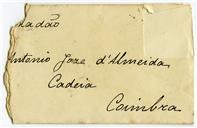 dadão
Antonio Joze d'Almeida
Cadeia
Coimbra